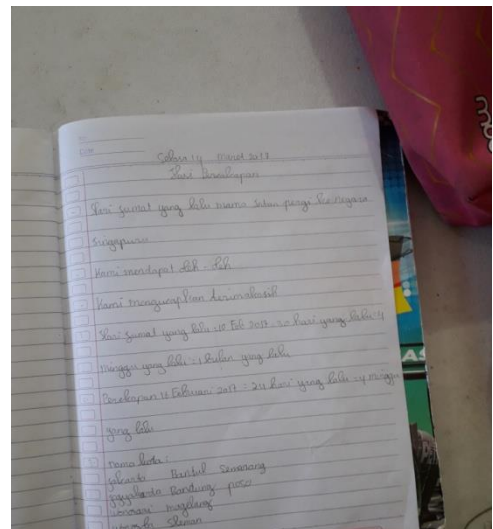 No.
Date
Selasa 14 Maret 2017
Hasil Percakapan
Hari jumat yang lalu mama intan pergi ke negara
singapura
Kami mendapat oleh - oleh
Kami mengucapkan terimakasih
Hari jumat yang lalu 10 Feb 2017 = 30 hari yang lalu = 4
minggu yang lalu = 1 bulan yang lalu
Percakapan 18 Februari 2017 = 24 hari yang lalu = 4 minggu
yang lalu
nama kota :
jakarta Bantul Semarang
jogjakarta Bandung poso
magelang
Sleman